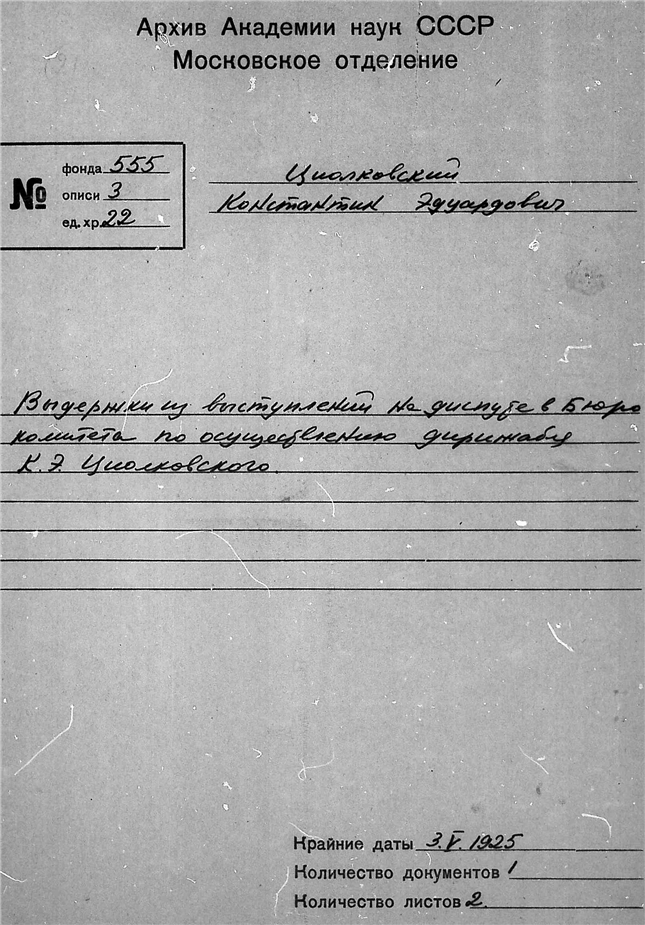 Архив Академии наук СССР
Московское отделение
№
фонда 555
описи 3
ед. хр. 22
Циолковский
Константин Эдуардович
Выдержки из выступлений на диспуте в Бюро
комитета по осуществлению дирижабля
К. Э. Циолковского
Крайние даты 3.V.1925
Количество документов 1
Количество листов 2.